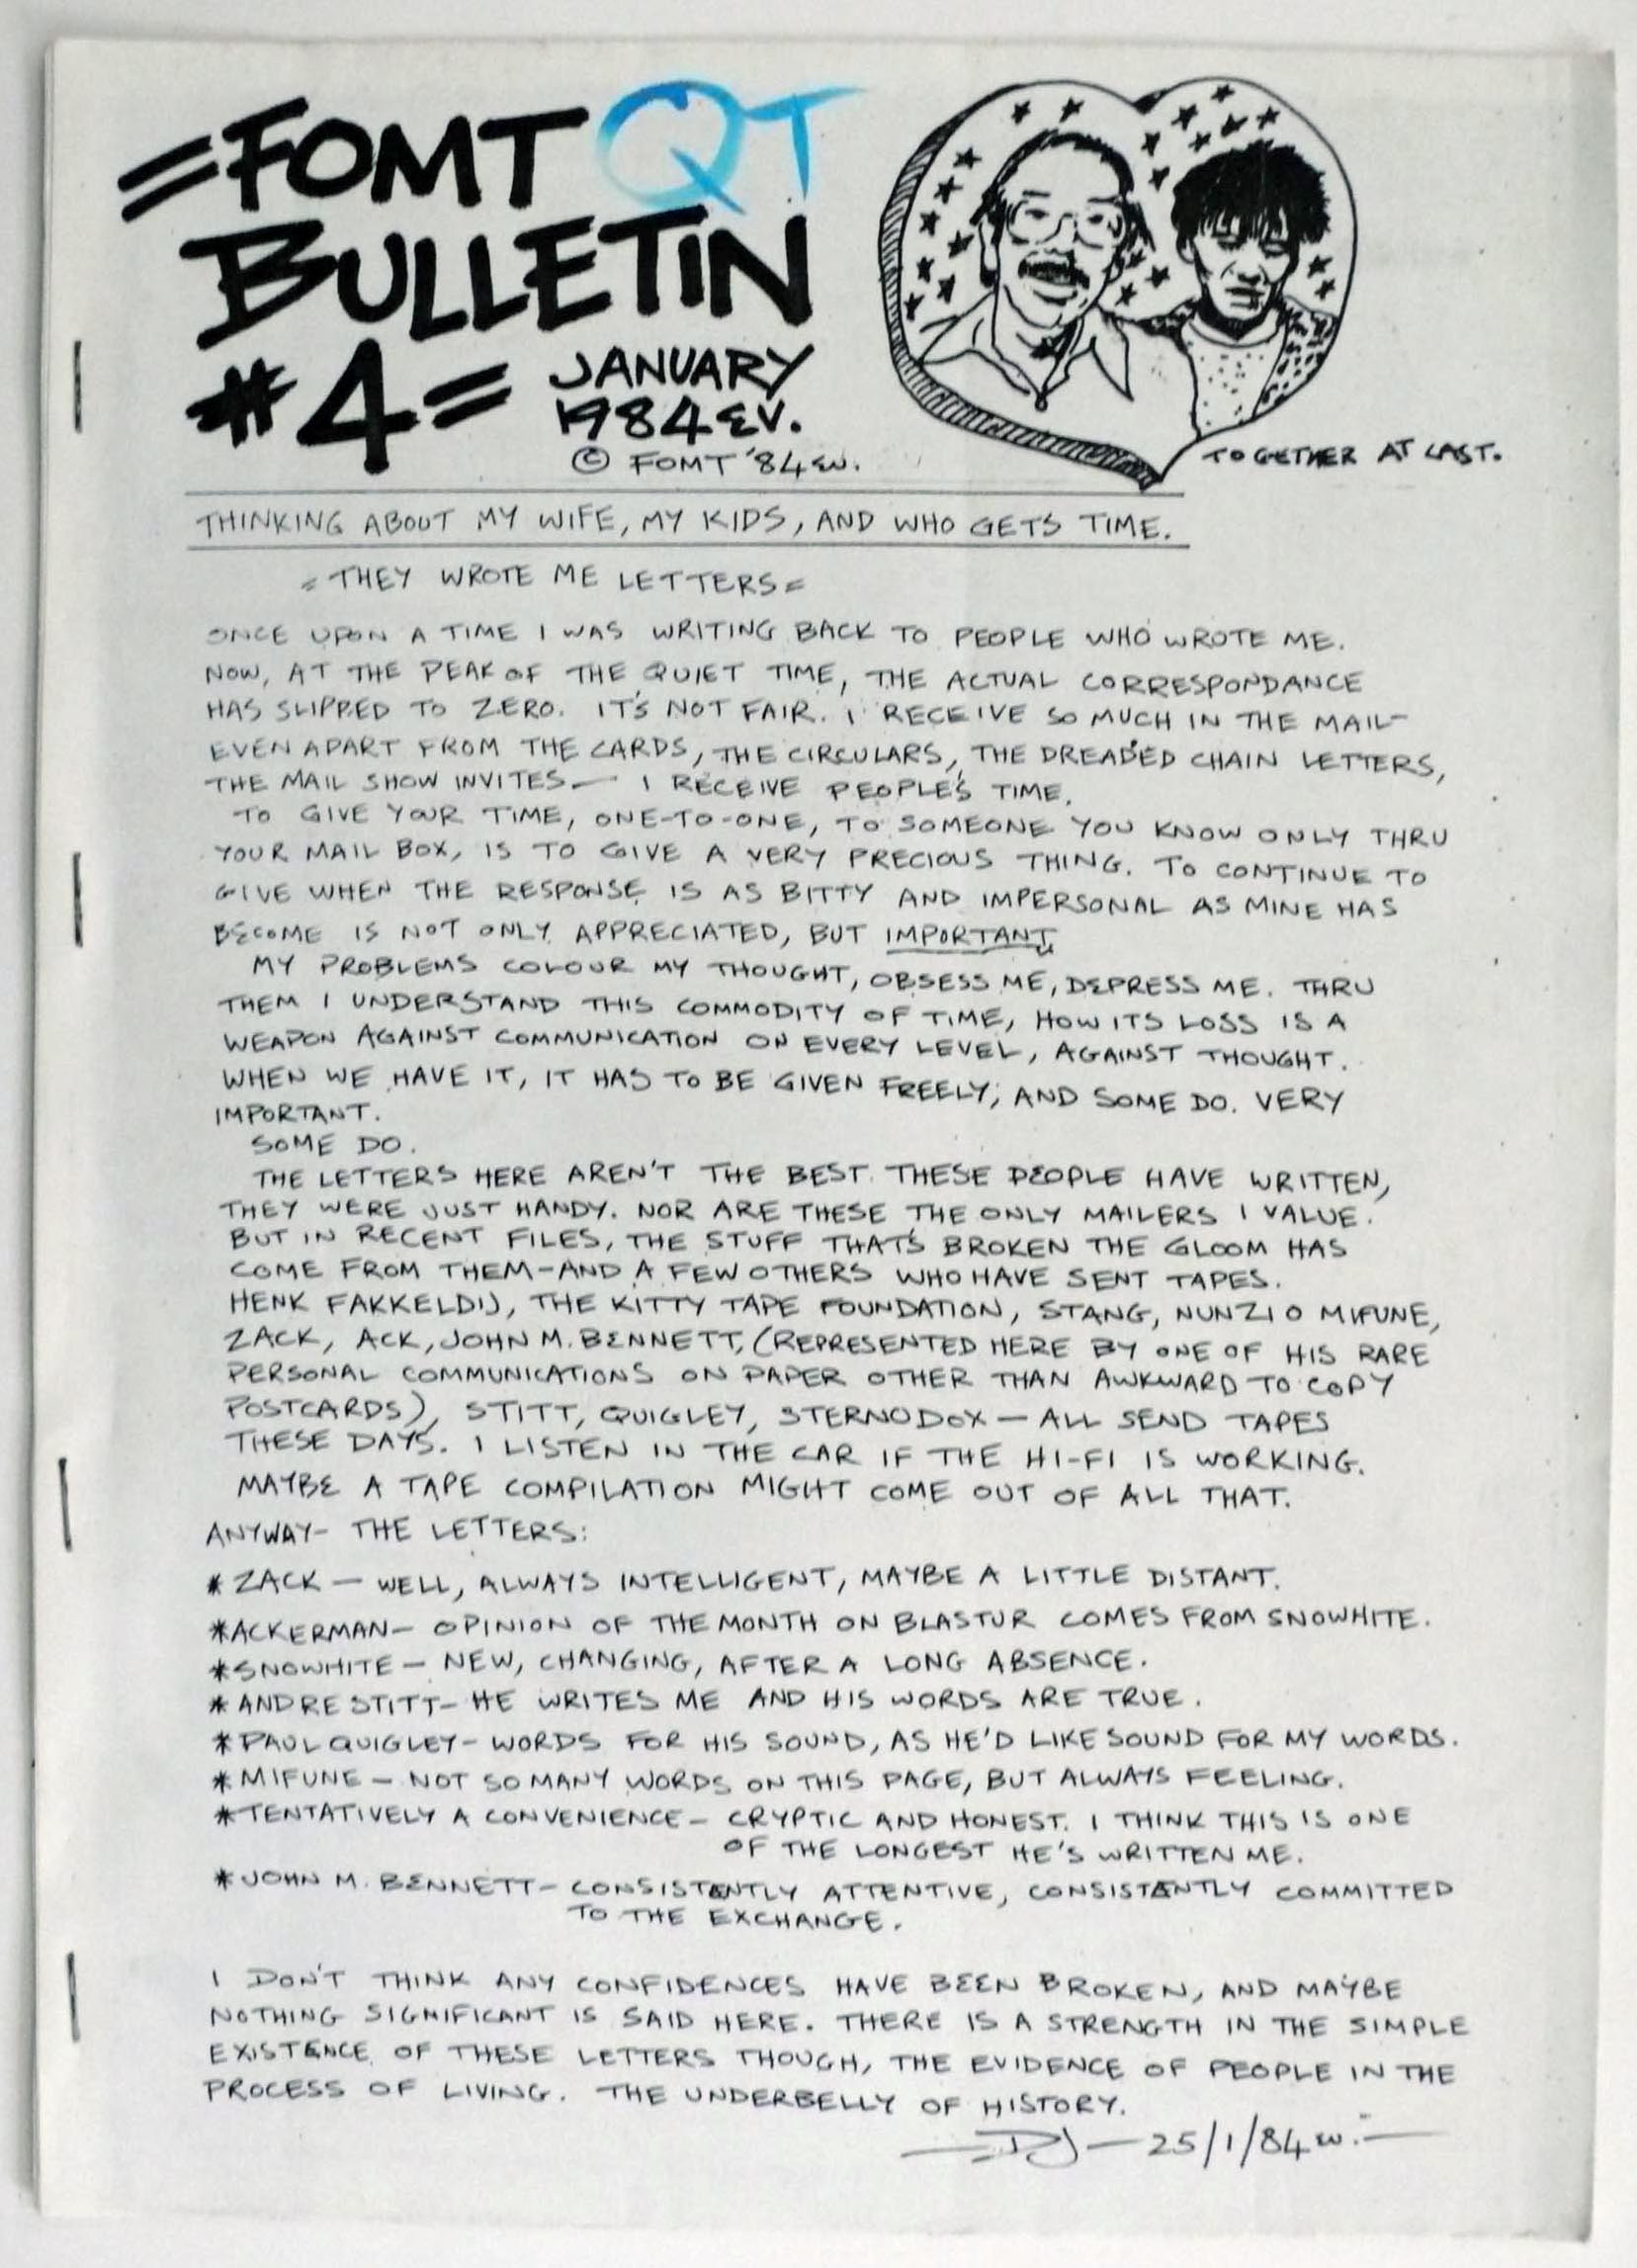 =FOMT QT
BULLETIN
#4=
JANUARY
1984 EV.
© FOMT '84 EV.
TOGETHER AT LAST.
THINKING ABOUT MY WIFE, MY KIDS, AND WHO GETS TIME.
= THEY WROTE ME LETTERS =
ONCE UPON A TIME I WAS WRITING BACK TO PEOPLE WHO WROTE ME.
NOW, AT THE PEAK OF THE QUIET TIME, THE ACTUAL CORRESPONDANCE
HAS SLIPPED TO ZERO. IT'S NOT FAIR. I RECEIVE SO MUCH IN THE MAIL-
EVEN APART FROM THE CARDS, THE CIRCULARS, THE DREADED CHAIN LETTERS,
THE MAIL SHOW INVITES — I RECEIVE PEOPLE'S TIME.
TO GIVE YOUR TIME, ONE-TO-ONE, TO SOMEONE YOU KNOW ONLY THRU
YOUR MAIL BOX, IS TO GIVE A VERY PRECIOUS THING. TO CONTINUE TO
GIVE WHEN THE RESPONSE IS AS BITTY AND IMPERSONAL AS MINE HAS
BECOME IS NOT ONLY APPRECIATED, BUT IMPORTANT
MY PROBLEMS COLOUR MY THOUGHT, OBSESS ME, DEPRESS ME. THRU
THEM I UNDERSTAND THIS COMMODITY OF TIME, HOW ITS LOSS IS A
WEAPON AGAINST COMMUNICATION ON EVERY LEVEL, AGAINST THOUGHT.
WHEN WE HAVE IT, IT HAS TO BE GIVEN FREELY, AND SOME DO. VERY
IMPORTANT.
SOME DO.
THE LETTERS HERE AREN'T THE BEST THESE PEOPLE HAVE WRITTEN,
THEY WERE JUST HANDY. NOR ARE THESE THE ONLY MAILERS I VALUE.
BUT IN RECENT FILES, THE STUFF THAT'S BROKEN THE GLOOM HAS
COME FROM THEM-AND A FEW OTHERS WHO HAVE SENT TAPES.
HENK FAKKELDIJ, THE KITTY TAPE FOUNDATION, STANG, NUNZIO MIFUNE,
ZACK, ACK, JOHN M. BENNETT, (REPRESENTED HERE BY ONE OF HIS RARE
PERSONAL COMMUNICATIONS ON PAPER OTHER THAN AWKWARD TO COPY
POSTCARDS), STITT, QUIGLEY, STERNODOX — ALL SEND TAPES
THESE DAYS. I LISTEN IN THE CAR IF THE HI-FI IS WORKING.
MAYBE A TAPE COMPILATION MIGHT COME OUT OF ALL THAT.
ANYWAY- THE LETTERS:
* ZACK — WELL, ALWAYS INTELLIGENT, MAYBE A LITTLE DISTANT.
*ACKERMAN- OPINION OF THE MONTH ON BLASTUR COMES FROM SNOWHITE.
*SNOWHITE — NEW, CHANGING, AFTER A LONG ABSENCE.
* ANDRE STITT- HE WRITES ME AND HIS WORDS ARE TRUE.
*PAUL QUIGLEY- WORDS FOR HIS SOUND, AS HE'D LIKE SOUND FOR MY WORDS.
*MIFUNE — NOT SO MANY WORDS ON THIS PAGE, BUT ALWAYS FEELING.
*TENTATIVELY A CONVENIENCE- CRYPTIC AND HONEST. I THINK THIS IS ONE
OF THE LONGEST HE'S WRITTEN ME.
*JOHN M. BENNETT- CONSISTENTLY ATTENTIVE, CONSISTENTLY COMMITTED
TO THE EXCHANGE.
I DON'T THINK ANY CONFIDENCES HAVE BEEN BROKEN, AND MAYBE
NOTHING SIGNIFICANT IS SAID HERE. THERE IS A STRENGTH IN THE SIMPLE
EXISTENCE OF THESE LETTERS THOUGH, THE EVIDENCE OF PEOPLE IN THE
PROCESS OF LIVING. THE UNDERBELLY OF HISTORY.
— DJ — 25/1/84 EV. —